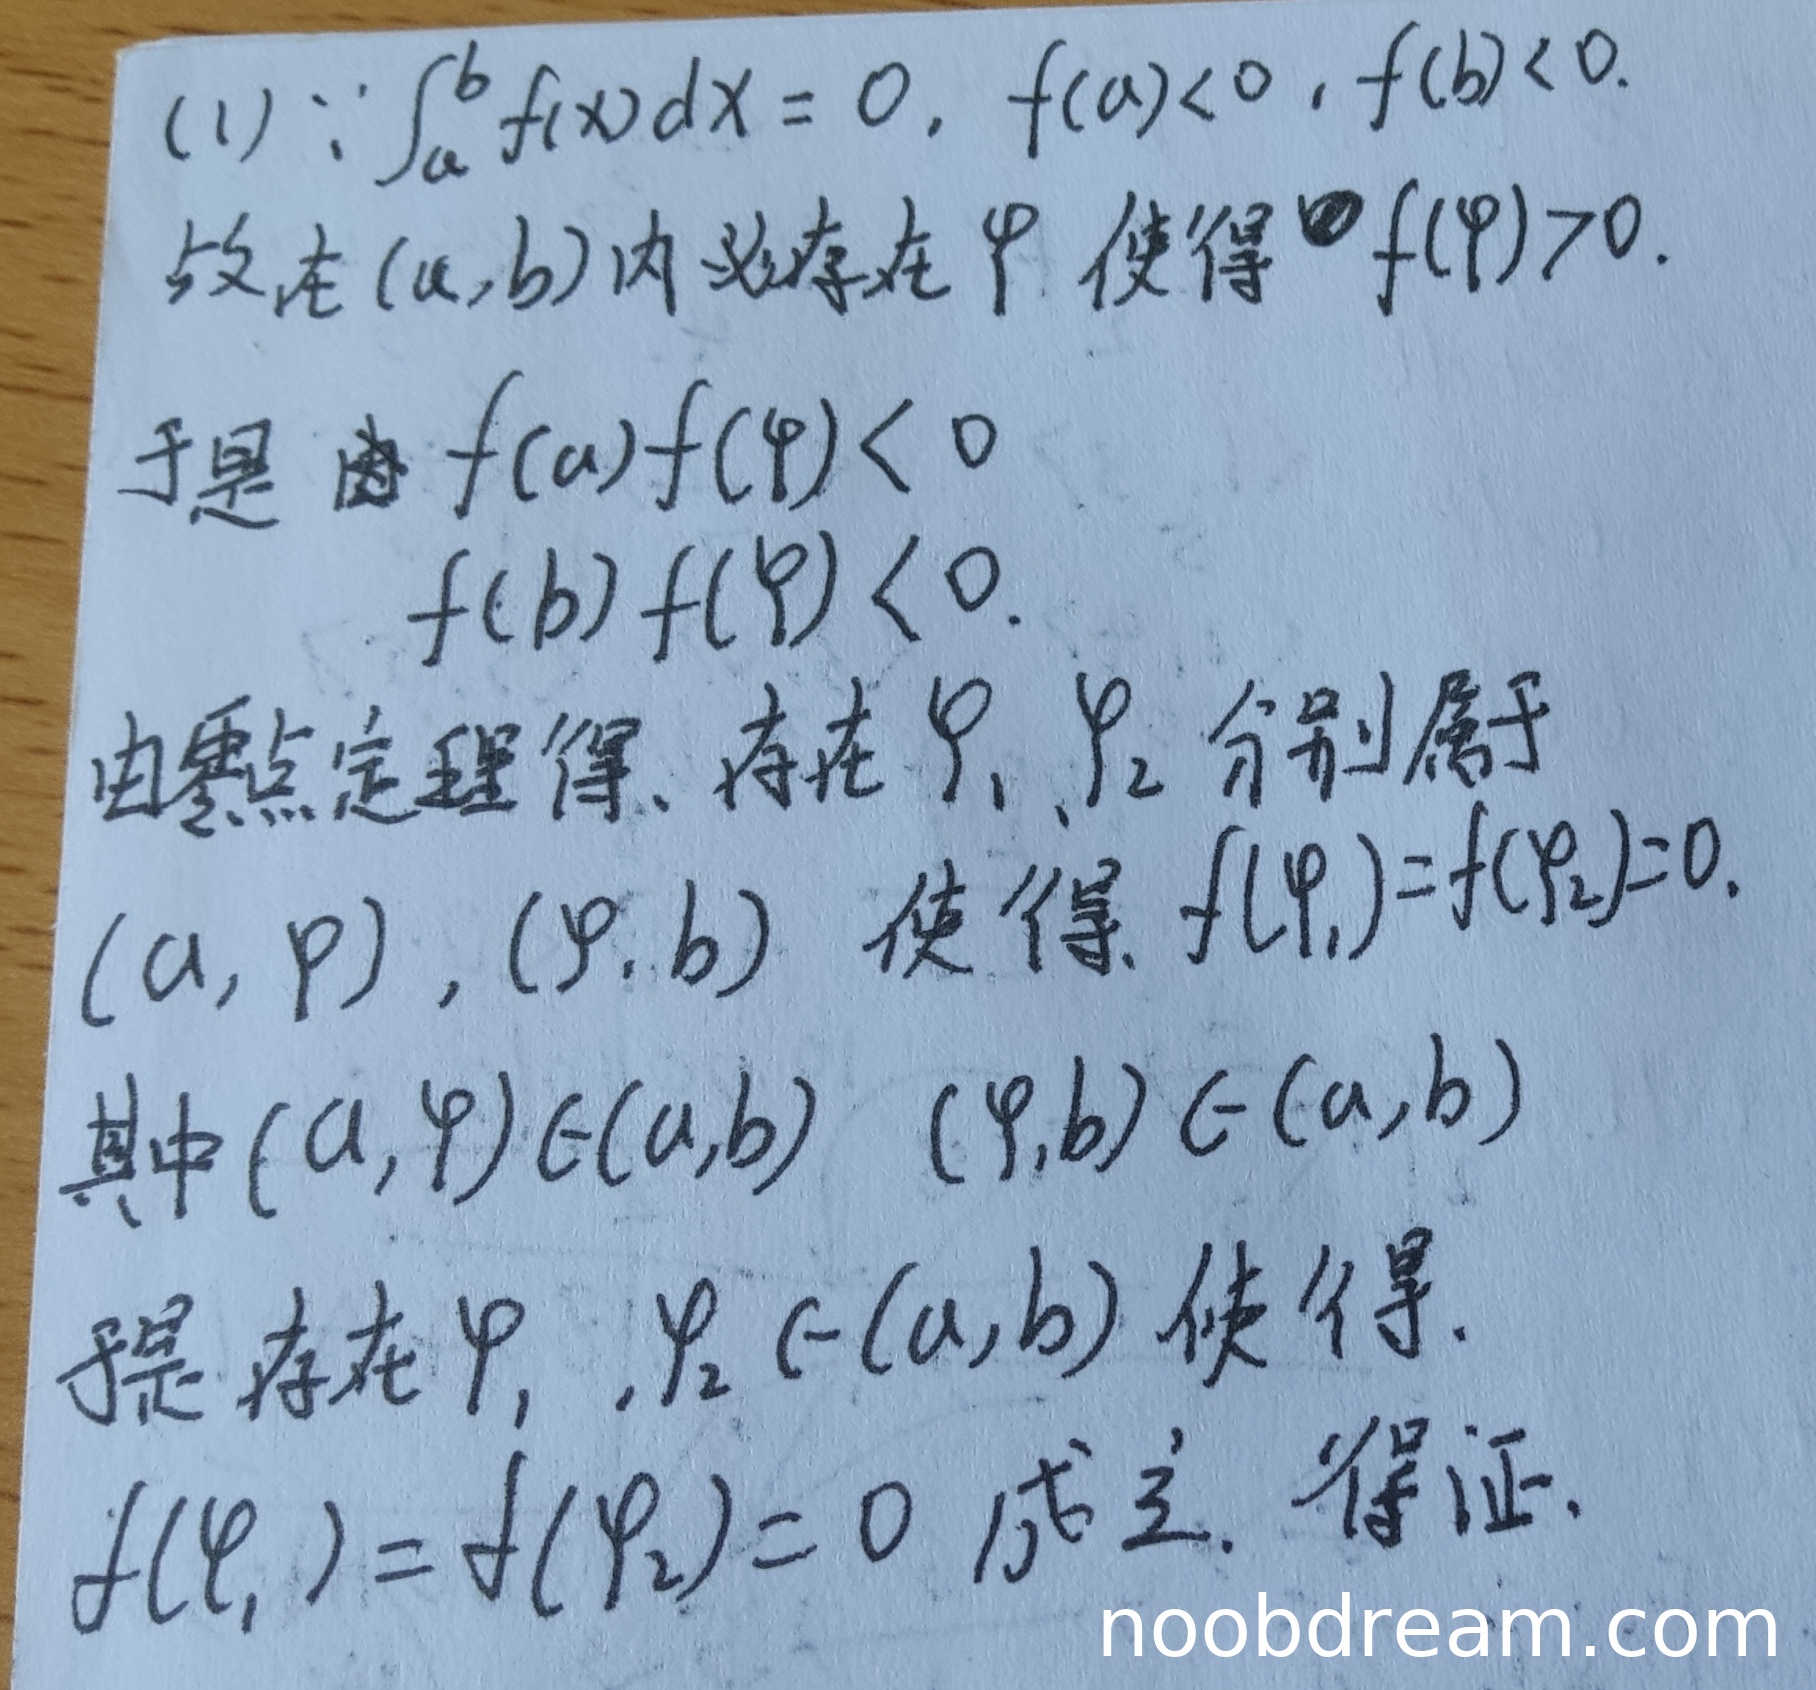 (1) ∵ ∫ₐᵇ f(x)dx = 0, f(a)<0, f(b)<0.
故在(a,b)内必存在φ 使得 f(φ)>0.
于是由 f(a)f(φ)<0
f(b)f(φ)<0.
由零点定理得、存在φ₁、φ₂分别属于
(a,φ),(φ,b) 使得. f(φ₁)=f(φ₂)=0.
其中(a,φ)∈(a,b) (φ,b)∈(a,b)
于是存在φ₁,φ₂∈(a,b)使得.
f(φ₁)=f(φ₂)=0 成立. 得证.
noobdream.com